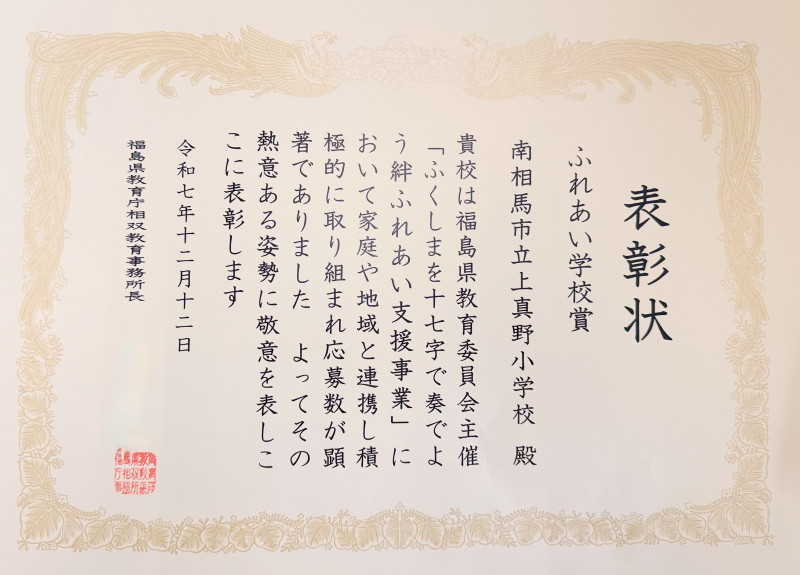 表彰状
ふれあい学校賞
南相馬市立上真野小学校 殿
貴校は福島県教育委員会主催
「ふくしまを十七字で奏でよ
う絆ふれあい支援事業」に
おいて家庭や地域と連携し積
極的に取り組まれ応募数が顕
著でありました よってその
熱意ある姿勢に敬意を表しこ
こに表彰します
令和七年十二月十二日
福島県教育庁相双教育事務所長